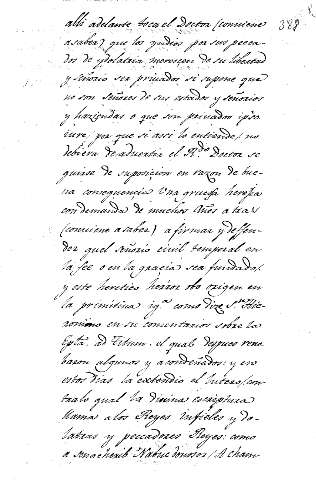 328
allí adelante toca el Doctor (conviene
a saber) que los yndios por sus pecca-
dos de ydolatria merecen de su libertad
y señorio ser priuados si supone que
no son señores de sus estados y señorios
y haziendas o que son priuados ipso
iure, por que si assi lo entiende, no
debiera de aduertir el Rdo Doctor se
guirse de suposicion en razon de bue-
na consequencia Una gruessa heregia
condemnada de muchos Años atras
(conviene a saber) afirmar y deffen-
der quel señorio civil temporal en
la fee o en la gracia sea fundado,
y este heretico herror obo origen en
la primitiua ygª como dize St Hie-
ronimo en su comentarios sobre la
Epla ad Titum, el qual despues reno-
baron algunos y condenados, y en
estos dias la extendio el lutero, con-
tra lo qual la diuina escriptura
llama a los Reyes infieles y do-
latras y peccadores Reyes, como
a Senacherib Nabucdonosor, A cham-